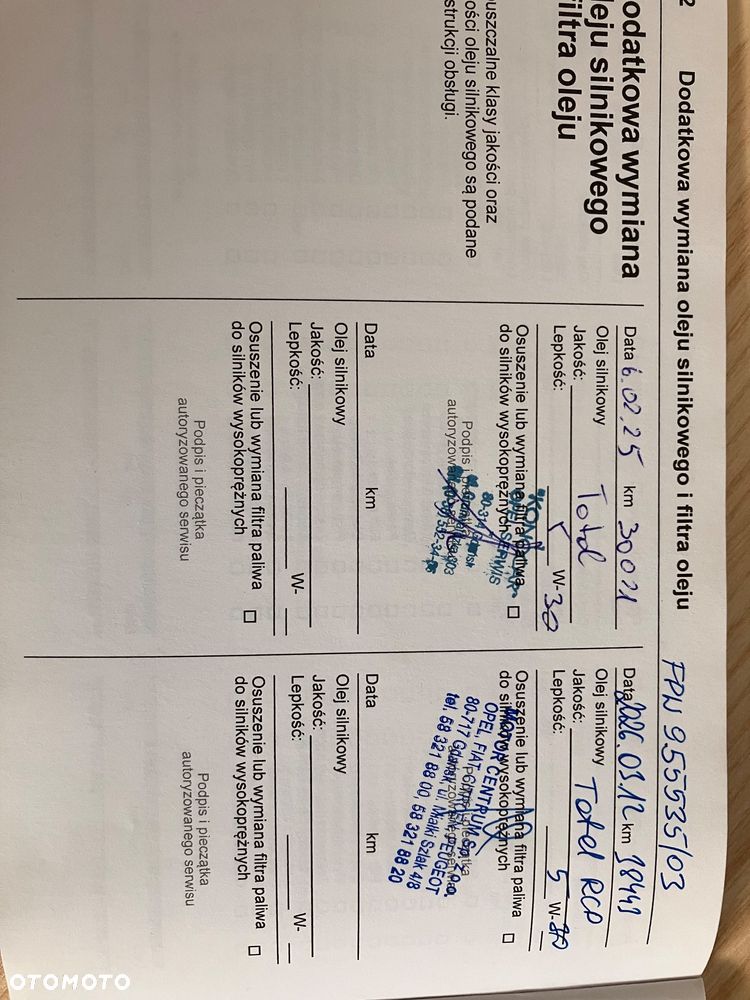 2 Dodatkowa wymiana oleju silnikowego i filtra oleju
odatkowa wymiana
leju silnikowego
filtra oleju
uszczalne klasy jakości oraz
ości oleju silnikowego są podane
strukcji obsługi.
Data 6.02.25 km 30021
Olej silnikowy
Jakość: Total
Lepkość: 5 W-30
Osuszenie lub wymiana filtra paliwa
do silników wysokoprężnych
Podpis i
autoryzowa
SERWIS
Data km
Olej silnikowy
Jakość:
Lepkość: W-
Osuszenie lub wymiana filtra paliwa
do silników wysokoprężnych
Podpis i pieczątka
autoryzowanego serwisu
FPN 955535/03
Data 2026.03.12 km 38449
Olej silnikowy
Jakość: Total RCP
Lepkość: 5 W-30
Osuszenie lub wymiana filtra paliwa
do silników wysokoprężnych
MOTOR CENTRUM
OPEL, FIAT, PEUGEOT
80-717 Gdańsk, ul. Miałki Szlak 4/8
tel. 58 321 88 00, 58 321 88 20
Data km
Olej silnikowy
Jakość:
Lepkość: W-
Osuszenie lub wymiana filtra paliwa
do silników wysokoprężnych
Podpis i pieczątka
autoryzowanego serwisu
OTOMOTO